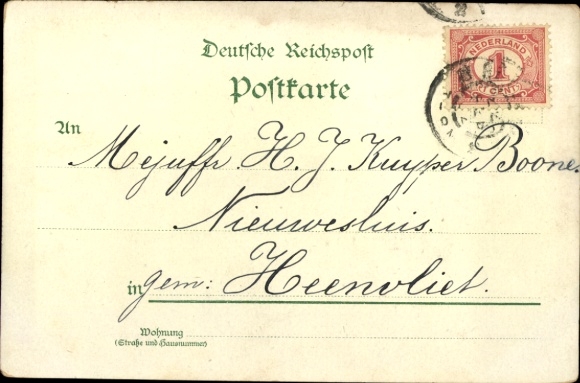 Deutsche Reichspost
Postkarte
NEDERLAND
1
CENT
An
Mejuffr. H. J. Kuyper Boone.
Nieuweshuis.
in gem: Heenvliet.
Wohnung
(Straße und Hausnummer)